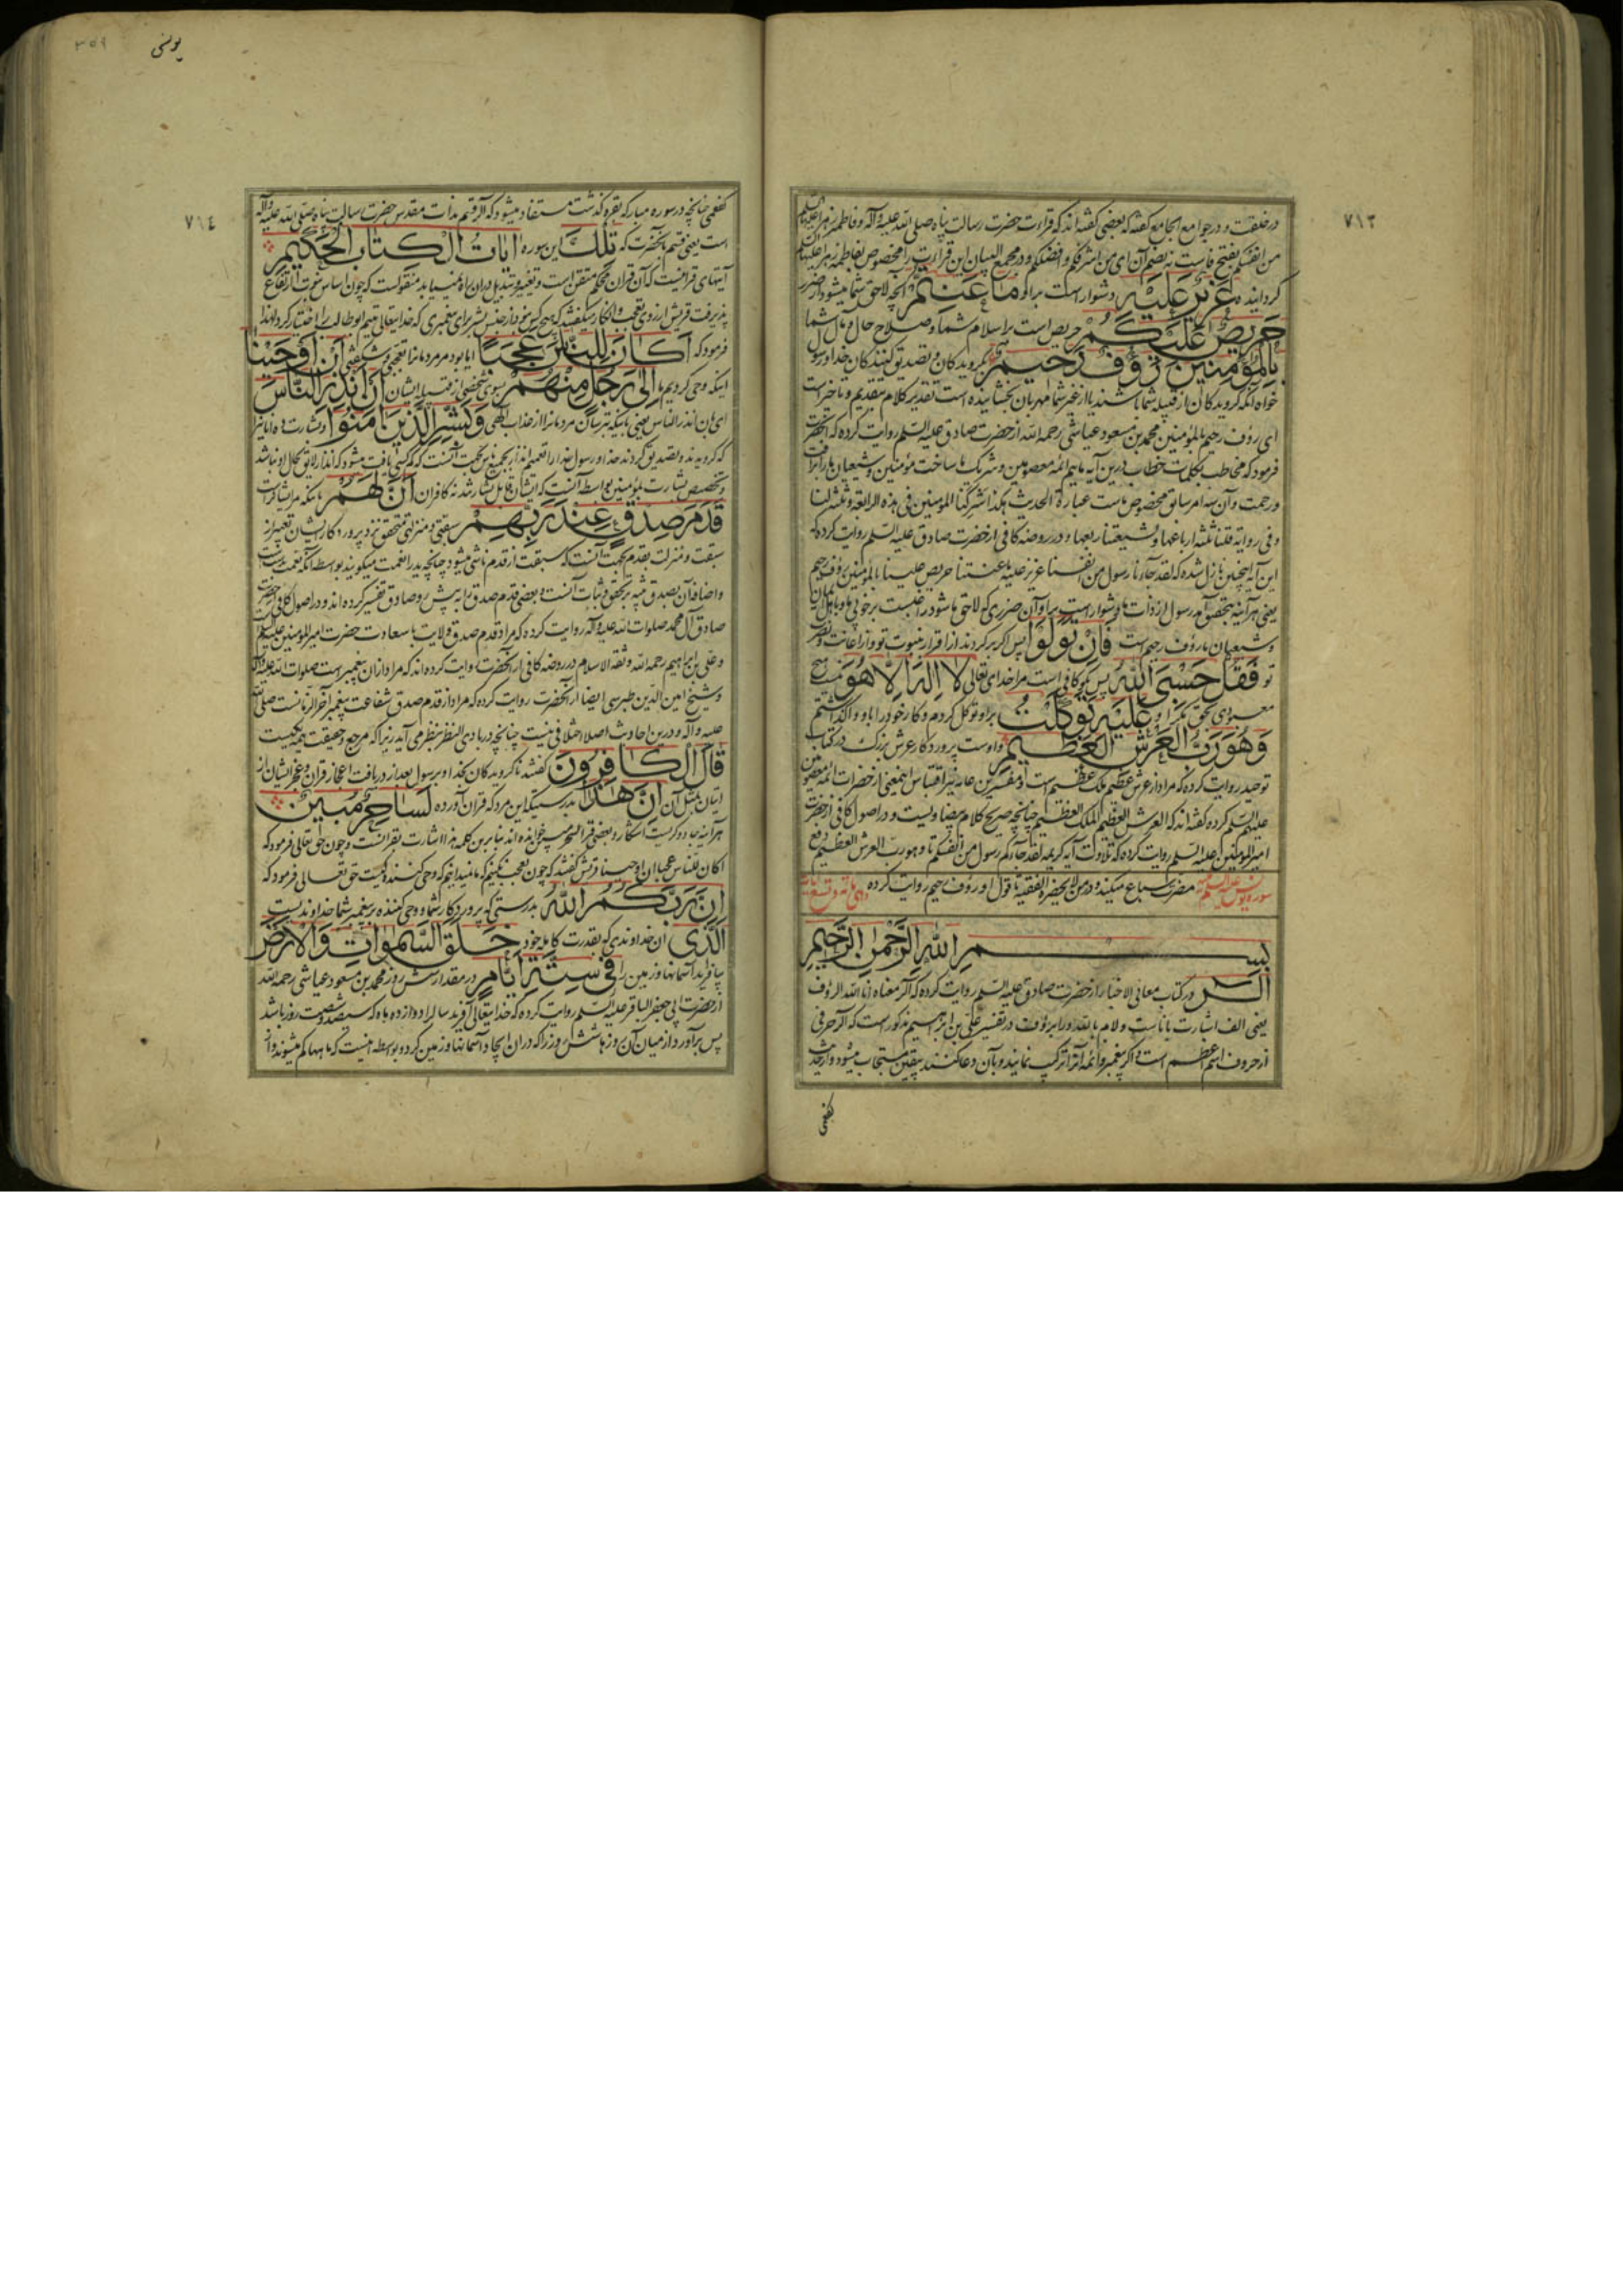 ٧١٣
در خلقت و در جوامع الجامع گفته که بعضی گفته‌اند که قراءت حضرت رسالت پناه صلی الله علیه و آله و فاطمه زهرا
من انفسکم بفتح فاست نه بضم آن ای من اشرفکم و افضلکم و در مجمع البیان این قراءت را مخصوص بفاطمه زهرا علیها
گردانیده عَزِیزٌ عَلَیْهِ دشوار است بر او مَا عَنِتُّمْ آنچه لاحق شما میشود از ضرر
حَرِیصٌ عَلَیْکُمْ حریص است بر اسلام شما و صلاح حال و مآل شما
بِالْمُؤْمِنِینَ رَؤُفٌ رَحِیمٌ بگرویدگان و تصدیق کنندگان خدا و رسول
خواه آنکه گرویدگان از قبیله شما باشند یا از غیر شما مهربان بخشاینده است تقدیر کلام بتقدیم و تاخیر است
ای رؤف رحیم بالمؤمنین محمد بن مسعود عیاشی رحمه الله از حضرت صادق علیه السلم روایت کرده که آنحضرت
فرمود که مخاطب بکلمات خطاب درین آیه ماییم ائمه معصومین و شریک ما ساخت مؤمنین و شیعیان ما را در رأفت
و رحمت و آن سه امر سابق مخصوص ماست عبارة الحدیث هکذا شرکنا المؤمنین فی هذه الرابعة و ثلثة لنا
و فی روایة قلنا ثلثة ارباعها و لشیعتنا ربعها و در روضه کافی از حضرت صادق علیه السلم روایت کرده که
این آیه اینچنین نازل شده که لقد جاءنا رسول من انفسنا عزیز علیه ما عنتنا حریص علینا بالمؤمنین رؤف رحیم
یعنی هر آینه بتحقیق آمد رسول از ذات ما دشوار است بر او آن ضرری که لاحق ما شود
و شیعیان ما رؤف رحیم است فَاِنْ تَوَلَّوْا پس اگر برگردند از اقرار بنبوت تو و از اعانت و نصرت
تو فَقُلْ حَسْبِیَ اللّٰهُ پس بگو کافی است مرا خدای تعالی لَا اِلٰهَ اِلَّا هُوَ نیست هیچ
معبودی بحق مگر او عَلَیْهِ تَوَکَّلْتُ بر او توکل کردم و کار خود را باو واگذاشتم
وَهُوَ رَبُّ الْعَرْشِ الْعَظِیمِ و اوست پروردگار عرش بزرگ در کتاب
توحید روایت کرده که مراد از عرش عظیم ملک عظیم است و مفسرین عامه نیز اقتباس اینمعنی از حضرات ائمه معصومین
علیهم السلم کرده گفته‌اند که العرش العظیم الملک العظیم چنانچه صریح کلام بیضاویست و در اصول کافی از حضرت
امیر المؤمنین علیه السلم روایت کرده که تلاوت آیه کریمه لقد جاءکم رسول من انفسکم تا و هو رب العرش العظیم دفع
مضرت سباع میکند و در من لا یحضره الفقیه تا قول او رؤف رحیم روایت کرده
سوره یونس علیه السلم مائه و تسع آیات
بِسْمِ اللّٰهِ الرَّحْمٰنِ الرَّحِیمِ
الٓرٰ در کتاب معانی الاخبار از حضرت صادق علیه السلم روایت کرده که الر معناه انا الله الرؤف
یعنی الف اشارت باناست و لام بالله و را برؤف و در تفسیر علی بن ابراهیم مذکور است که الر حرفی
از حروف اسم اعظم است که اگر پیغمبر و ائمه آنرا ترکیب نمایند و بآن دعا کنند بیقین مستجاب میشود و از حدیث
کفعمی
٣٥٩
یونس
٧١٤
کفعمی چنانچه در سوره مبارکه بقره گذشت مستفاد میشود که الر قسم بذات مقدس حضرت رسالت پناه صلی الله علیه و آله
است یعنی قسم بآنحضرت که تِلْکَ این سوره اٰیَاتُ الْکِتَابِ الْحَکِیمِ
آیتهای قرانیست که آن قران محکم متقن است و تغییر و تبدیل در آن راه نمییابد منقولست که چون اساس نبوت ارتفاع
پذیرفت قریش از روی تعجب و انکار میگفتند که هیچ کس نبود از جنس بشر برای پیغمبری که خدایتعالی یتیم ابو طالب را اختیار کرد لهذا
فرمود که اَکَانَ لِلنَّاسِ عَجَبًا ایا بود مر مردمانرا تعجبی و شگفتی اَنْ اَوْحَیْنَا
اینکه وحی کردیم ما اِلٰی رَجُلٍ مِنْهُمْ بسوی شخصی از قبیله ایشان اَنْ اَنْذِرِ النَّاسَ
ای بان انذر الناس یعنی باینکه بترسان مردمانرا از عذاب الهی وَبَشِّرِ الَّذِینَ اٰمَنُوا و بشارت ده آنانرا
که گرویدند و تصدیق کردند خدا و رسول خدا را تعمیم انذار بجمیع ناس بجهت آنست که کم کسی یافت میشود که انذار لایق بحال او نباشد
و تخصیص بشارت بمؤمنین بواسطه آنست که ایشان قابل بشارتند نه کافران اَنَّ لَهُمْ باینکه مر ایشانراست
قَدَمَ صِدْقٍ عِنْدَ رَبِّهِمْ سبقتی و منزلتی متحقق نزد پروردگار ایشان تعبیر از
سبقت و منزلت بقدم بجهت آنست که سبقت از قدم ناشی میشود چنانچه ید را نعمت میگویند بواسطه آنکه نعمت بدست
و اضافه آن بصدق تنبیه بر تحقق و ثبات آنست و بعضی قدم صدق را به پیش رو صادق تفسیر کرده‌اند و در اصول کافی از حضرت
صادق آل محمد صلوات الله علیه و آله روایت کرده که مراد قدم صدق ولایت با سعادت حضرت امیر المؤمنین علیه السلم
و علی بن ابراهیم رحمه الله و ثقة الاسلام در روضه کافی از آنحضرت روایت کرده‌اند که مراد از ان پیغمبر است صلوات الله علیه و آله
و شیخ امین الدین طبرسی ایضا از آنحضرت روایت کرده که مراد از قدم صدق شفاعت پیغمبر آخر الزمانست صلی الله
علیه و آله و در بن احادیث اصلا اختلافی نیست چنانچه در بادی النظر بنظر می آید زیرا که مرجع و حقیقت همه یکیست
قَالَ الْکَافِرُونَ گفتند ناگرویدگان بخدا و رسول بعد از دریافت اعجاز قران و عجز ایشان از
اتیان بمثل آن اِنَّ هٰذَا بدرستیکه این مرد که قران آورده لَسَاحِرٌ مُبِینٌ
هر آینه جادوگریست آشکار و بعضی قرا لسحر خوانده‌اند بنا برین کلمه هذا اشارت بقرانست و چون حق تعالی فرمود که
اکان للناس عجبا ان اوحینا قریش گفتند که چون تعجب نکنیم که ما نمیدانیم که وحی کننده کیست حق تعالی فرمود که
اِنَّ رَبَّکُمُ اللّٰهُ بدرستی که پروردگار شما و وحی کننده بر پیغمبر شما خداوندیست
الَّذِی آن خداوندی که بقدرت کامله خود خَلَقَ السَّمٰوَاتِ وَالْاَرْضَ
بیافرید آسمانها و زمین را فِی سِتَّةِ اَیَّامٍ در مقدار شش روز محمد بن مسعود عیاشی رحمه الله
از حضرت ابی جعفر الباقر علیه السلم روایت کرده که خدایتعالی آفرید سالرا دوازده ماه که سیصد و شصت روز باشد
پس برآورد از میان آن روزها شش روز را که در ان ایجاد آسمانها و زمین کرد و بواسطه اینست که ماهها کم میشوند و از